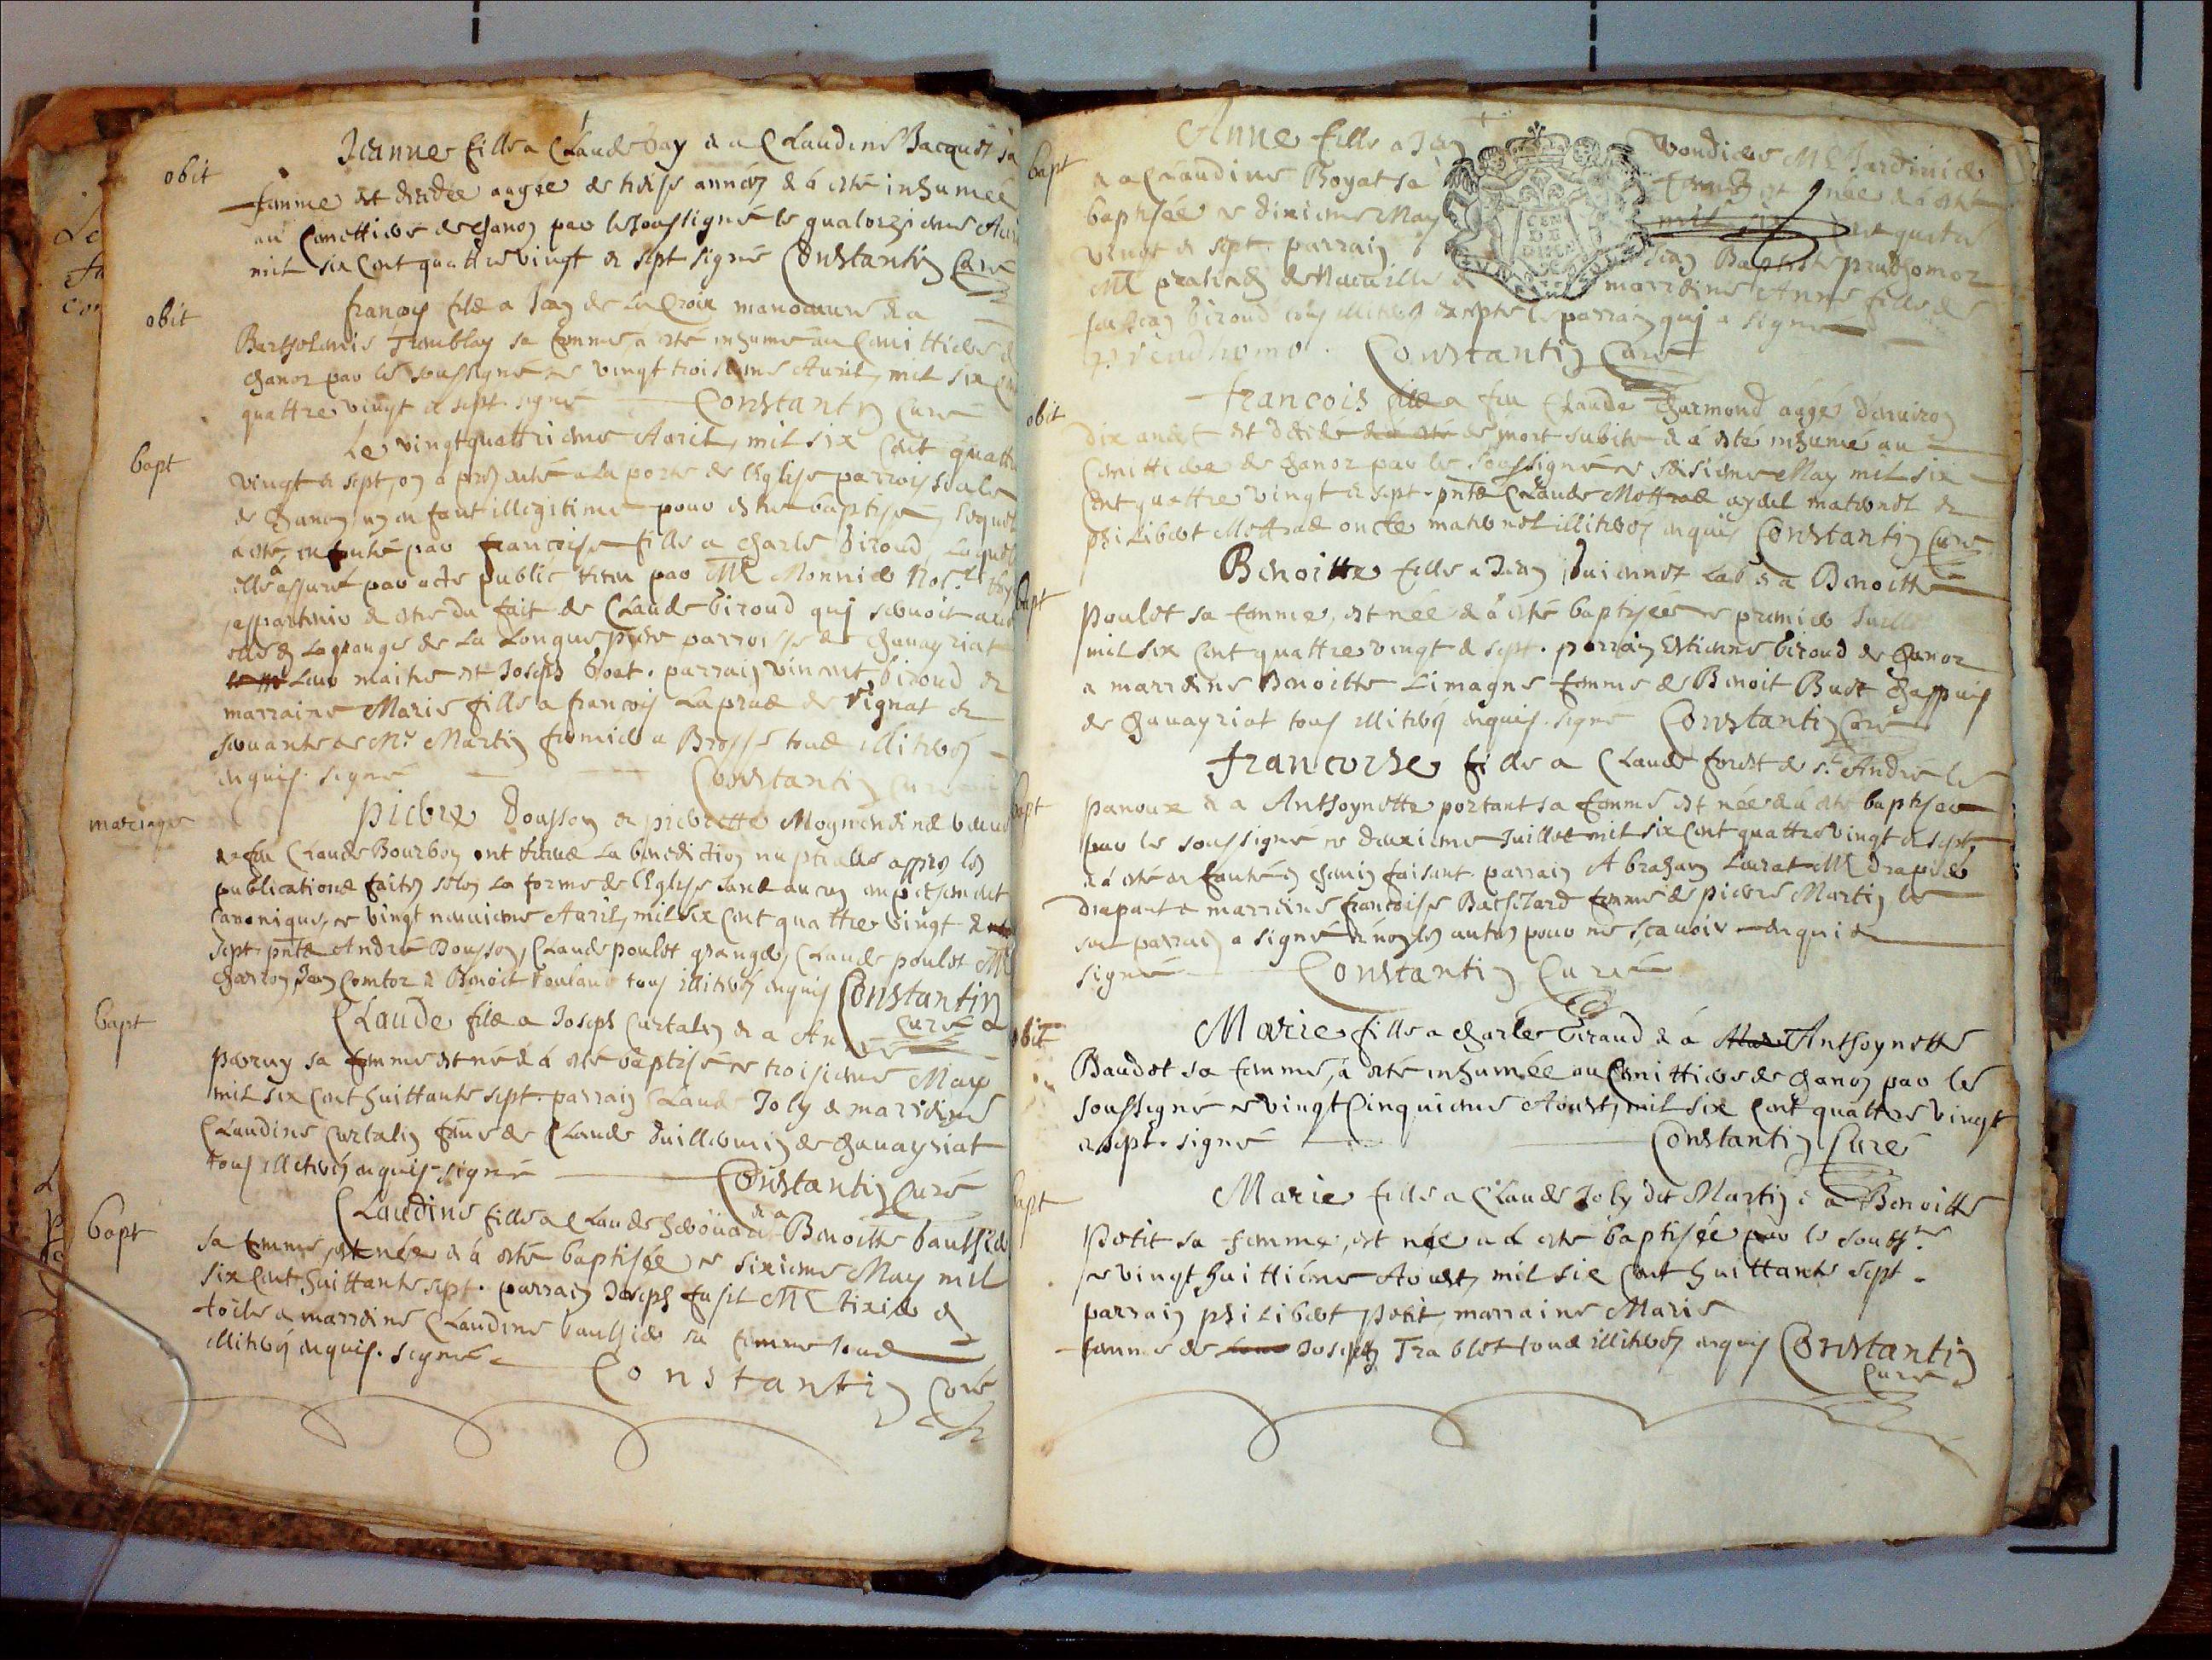 obit
Jeanne fille a Claude bay & a Claudine Bacquet sa
femme est decedée aagée de treise années & à esté inhumée
au Cimettiere de chanoz par le soussigné le quatorzieme Auri
mil six Cent quattre vingt & sept signé Constantin Curé
obit
françois filz a Jean de La Croix manoeuvre & a
Bartholemie Tramblay sa femme, à esté inhumé au Cimittiere d
chanoz par le soussigné ce vingt troisieme Auril, mil six Cen
quattre vingt et sept signé Constantin Curé
bapt
Le vingt quattrieme Auril, mil six Cent quattre
vingt & sept, on a presenté a La porte de l'Eglise parroissialle
de chanoz, un enfant illegitime pour estre baptisé, lequel
a esté enfanté par françoise fille a charle biroud, Laquel
elle a assuré par acte public receu par Me Monnier Not.re
appartenir & estre du fait de Claude biroud qui seruoit auec
elle en La grange de La Longue pierre parroisse de chauayriat
Leur maitre est Joseph boat. parrain vincent biroud &
marraine Marie fille a françois Lapraz de vignat &
seruante de Mr Martin fermier a Brosse touz illiterez
enquis. signé Constantin Curé
mariage
pierre Dousson & pierrette Mognendinz veuue
de feu Claude Bourbon ont receuz La benediction nuptialle apprez les
publicationz faites selon La forme de l'Eglise sanz aucun empeschement
Canonique, ce vingt neuuieme Auril, mil six Cent quattre vingt &
sept. pntz André Dousson, Claude poulet granger, Claude poulet Me
charron, Jean Comtoz & Benoit touz illiterez enquis Constantin
Curé
bapt
Claude filz a Joseph Curtalin & a
perruy sa femme est né & à esté baptisé ce troisieme May
mil six Cent huittante sept. parrain Claude Joly & marraine
Claudine Curtalin feme de Claude Duillermin de chauayriat
tous illiterez enquis signé Constantin Curé
bapt
Claudine fille a Claude & a Benoitte bauthier
sa femme, est née & à esté baptisée ce sixieme May mil
six Cent huittante sept. parrain Joseph fusil Me tixier en
toile & marraine Claudine bauthier sa femme touz
illiterez enquis. signé Constantin Curé
bapt
Anne fille a Jean vendier Me Jardinier
& a Claudine Royat sa femme est née & à esté
baptisée ce dixieme May mil six Cent quatre
vingt & sept. parrain Jean Baptiste prudhomoz
Me de Neuuille & marraine Anne fille de
feu Jean biroud touz illiterez excepte le parrain qui a signé
prudhomo. Constantin Curé
obit
françois filz a feu Claude charmond aagé d'enuiron
dix ans est decede de mort subite & à esté inhumé au
Cimittiere de chanoz par le soussigné ce seisieme May mil six
Cent quattre vingt & sept. pntz Claude Mottraz ayeul maternel &
philibert Mottraz oncle maternel illiterez enquis Constantin Curé
bapt
Benoitte fille a Jean Lab & a Benoitte
poulet sa femme, est née & à esté baptisée ce premier Juill
mil six Cent quattre vingt & sept. parrain Estienne biroud de chanoz
& marraine Benoitte Limagne femme de Benoit Buet chappuis
de chauayriat tous illiterez enquis. signé Constantin Curé
bapt
francoise fille a Claude forest de st André le
panoux & a Anthoynette portant sa femme est née & à esté baptisée
par le soussigné ce deuxieme Juillet mil six Cent quattre vingt & sept,
& à esté enfantée en chemin faisant. parrain Abraham Laurat Me drapier
drapant & marraine francoise Bachelard femme de pierre Martin le
seul parrain a signé & non les autres pour ne scauoir enquis
signé Constantin Curé
obit
Marie fille a charle biraud & á Anthoynette
Baudet sa femme, à esté inhumée au Cimittiere de chanoz par le
soussigné ce vingt Cinquieme Aoust, mil six Cent quattre vingt
& sept. signé Constantin Curé
bapt
Marie fille a Claude Joly dit Martin & a Benoitte
Petit sa femme, est née & á esté baptisée par le souss.né
ce vingt huittiéme Aoust, mil six Cent huittante sept.
parrain philibert Petit, marraine Marie
femme de Joseph Trablet touz illiterez enquis Constantin
Curé